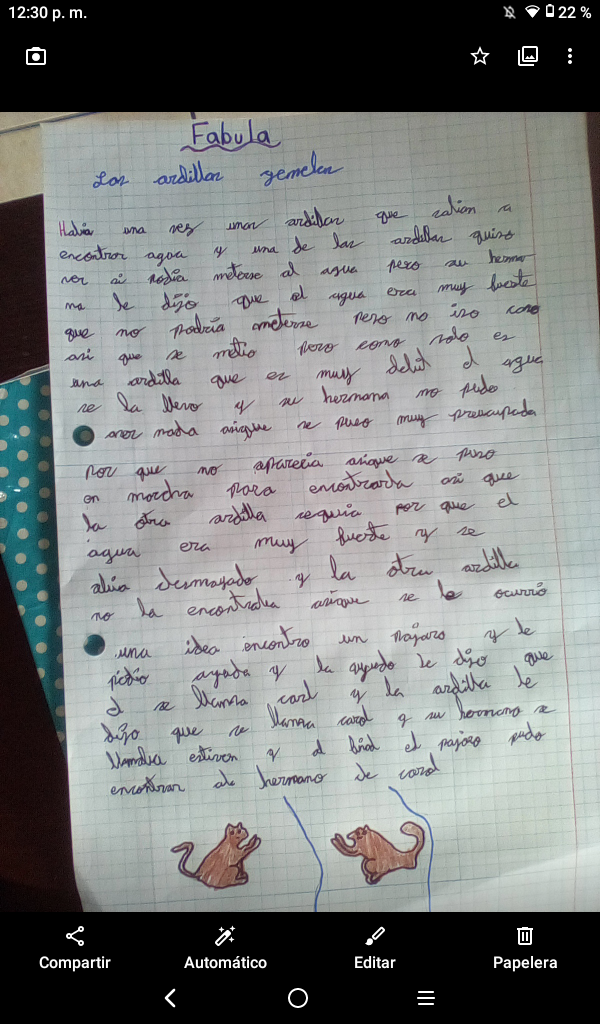 12:30 p. m.
22 %
Fabula
Las ardillas gemelas
Había una vez unas ardillas que salian a
encontrar agua y una de las ardillas quiso
ver si podia meterse al agua pero su herma
na le dijo que el agua era muy fuerte
que no podria meterse pero no iso caso
asi que se metio pero como solo es
una ardilla que es muy debil el agua
se la llevo y su hermana no pudo
aser nada asique se puso muy preocupada
por que no aparecia asique se puso
en marcha para encontrarla asi que
la otra ardilla seguia por que el
agua era muy fuerte y se
abia desmayado y la otra ardilla
no la encontraba asique se le ocurrio
una idea encontro un pajaro y le
pidio ayuda y la ayudo le dijo que
el se llama carl y la ardilla le
dijo que se llama carol y su hermano se
llamaba estiven y al final el pajaro pudo
encontrar al hermano de carol
Compartir
Automático
Editar
Papelera